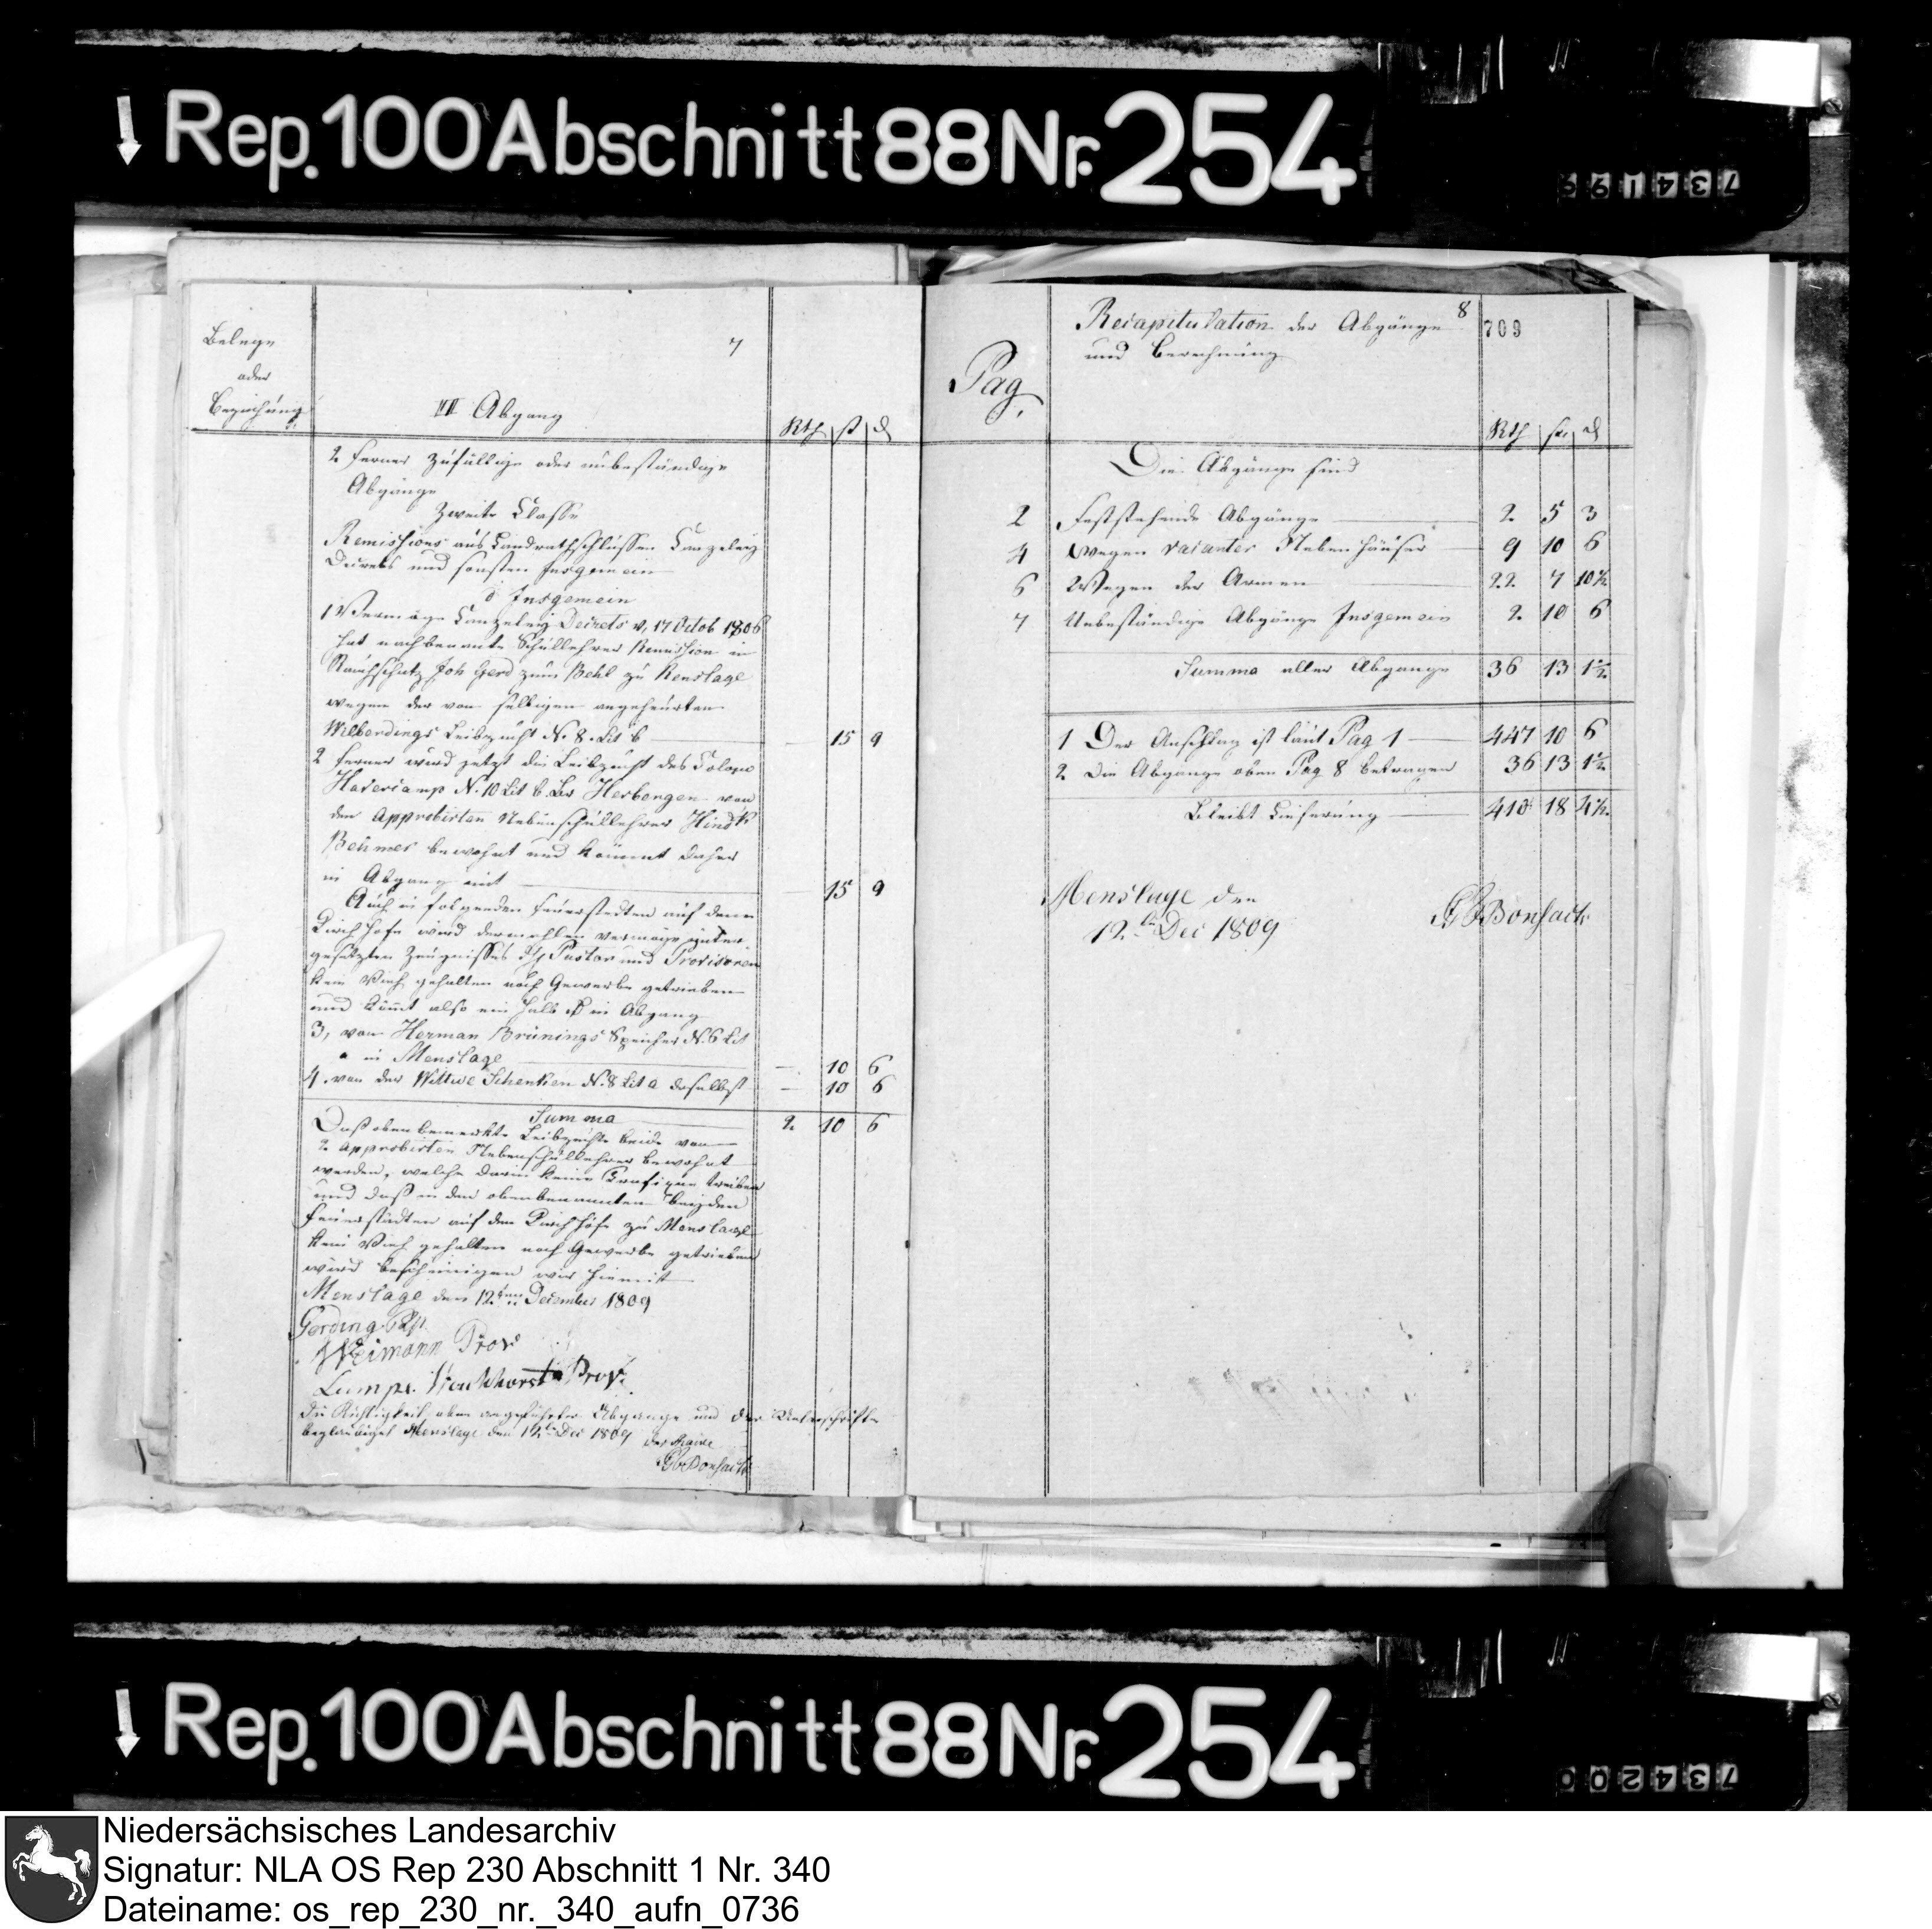 Rep. 100 Abschnitt 88 Nr. 254
734199
Belege
oder
Beziehung
7
VII Abgang
Rth ß d
2 Ferner Zufällige oder unbeständige
Abgänge
Zweite Classe
Remissions aus Landrathschlüssen Canzeley
Decrets und sonsten Insgemein
d Insgemein
1 Vermöge Canzeley Decrets v. 17 Octob 1806
hat nachbenannte Schullehrer Remission in
Rauchschatz Joh Gerd zum Behl zu Renslage
wegen der von selbigen angeheurten
Wilberdings Leibzucht N. 8. Lit b — 15 9
2 Ferner wird jetzt die Leibzucht des Colone
Havercamp N. 10 Lit b. Bs Herbergen von
den Approbirten Nebenschullehrer Hindk
Behmer bewohnt und kömmt daher
in Abgang mit — 15 9
Auch in folgenden Feuerstedten auf denen
Kirchhofe wird dermahlen vermöge unter
gesetzten Zeugnisses H Pastor und Provisoren
kein Vieh gehalten noch Gewerbe getrieben
und kömt also ein halb ß in Abgang
3, von Herman Brünings Speicher N. 6 Lit
a in Menslage — 10 6
4. von der Wittwe Schenken N. 8 Lit a daselbst — 10 6
Summa 2 10 6
Daß oben bemerkte Leibzuchte beide von
2 Approbirten Nebenschullehrer bewohnt
werden, welche darin keine Profession treiben
und daß in den obenbenannten beyden
Feuerstädten auf dem Kirchhofe zu Menslage
kein Vieh gehalten noch Gewerbe getrieben
wird bescheinigen wir hiemit
Menslage den 12ten December 1809
Gerding Past
Weimann Prov
Prov.
Die Richtigkeit oben angeführter Abgänge und der Unterschrifte
beglaubiget Menslage den 12te Dec 1809 der Maire
GBBonsack
Pag
Recapitulation der Abgänge 8
und Berechnung
709
Rth ß d
Die Abgänge sind
2 Feststehende Abgänge — 2 5 3
4 Wegen vacanter Neben Häuser — 9 10 6
6 Wegen der Armen — 22 7 10½
7 Unbeständige Abgänge Insgemein 2 10 6
Summa aller Abgänge 36 13 1½
1 Der Anschlag ist laut Pag 1 — 447 10 6
2 Die Abgänge oben Pag 8 betragen 36 13 1½
Bleibt Lieferung — 410 18 4½
Menslage den
12te Dec 1809
GBBonsack
Rep. 100 Abschnitt 88 Nr. 254
734200
Niedersächsisches Landesarchiv
Signatur: NLA OS Rep 230 Abschnitt 1 Nr. 340
Dateiname: os_rep_230_nr._340_aufn_0736